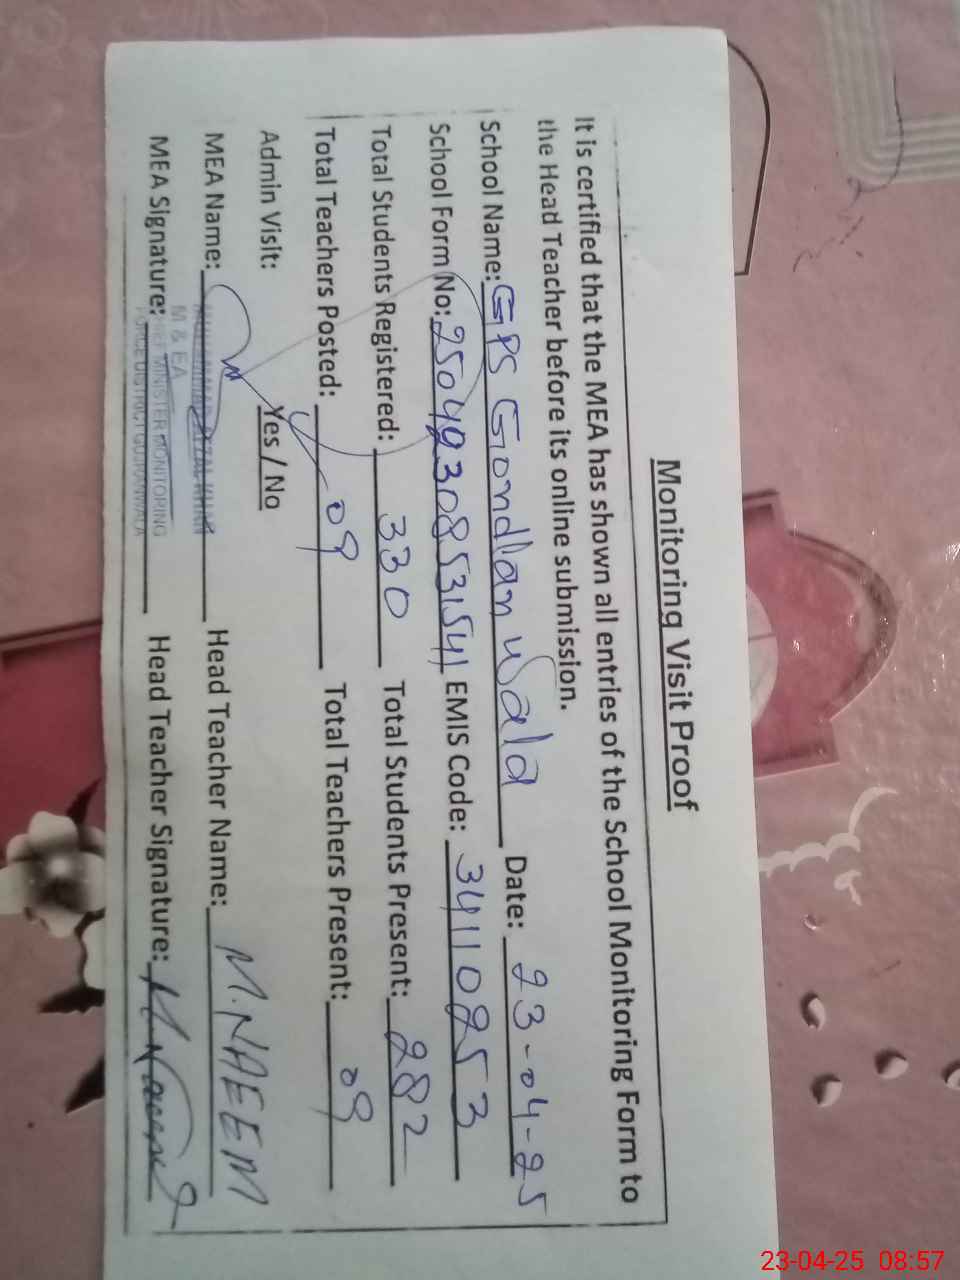 Monitoring Visit Proof
It is certified that the MEA has shown all entries of the School Monitoring Form to
the Head Teacher before its online submission.
School Name: GPS Gondlanwala Date: 23-04-25
School Form No: 25049308531541 EMIS Code: 34110253
Total Students Registered: 330 Total Students Present: 282
Total Teachers Posted: 09 Total Teachers Present: 09
Admin Visit: Yes / No
MEA Name: MUHAMMAD AFZAL KHAN Head Teacher Name: M.NAEEM
M & EA
MEA Signature: CHIEF MINISTER MONITORING Head Teacher Signature: M.Naeem
FORCE DISTRICT GUJRANWALA
23-04-25 08:57